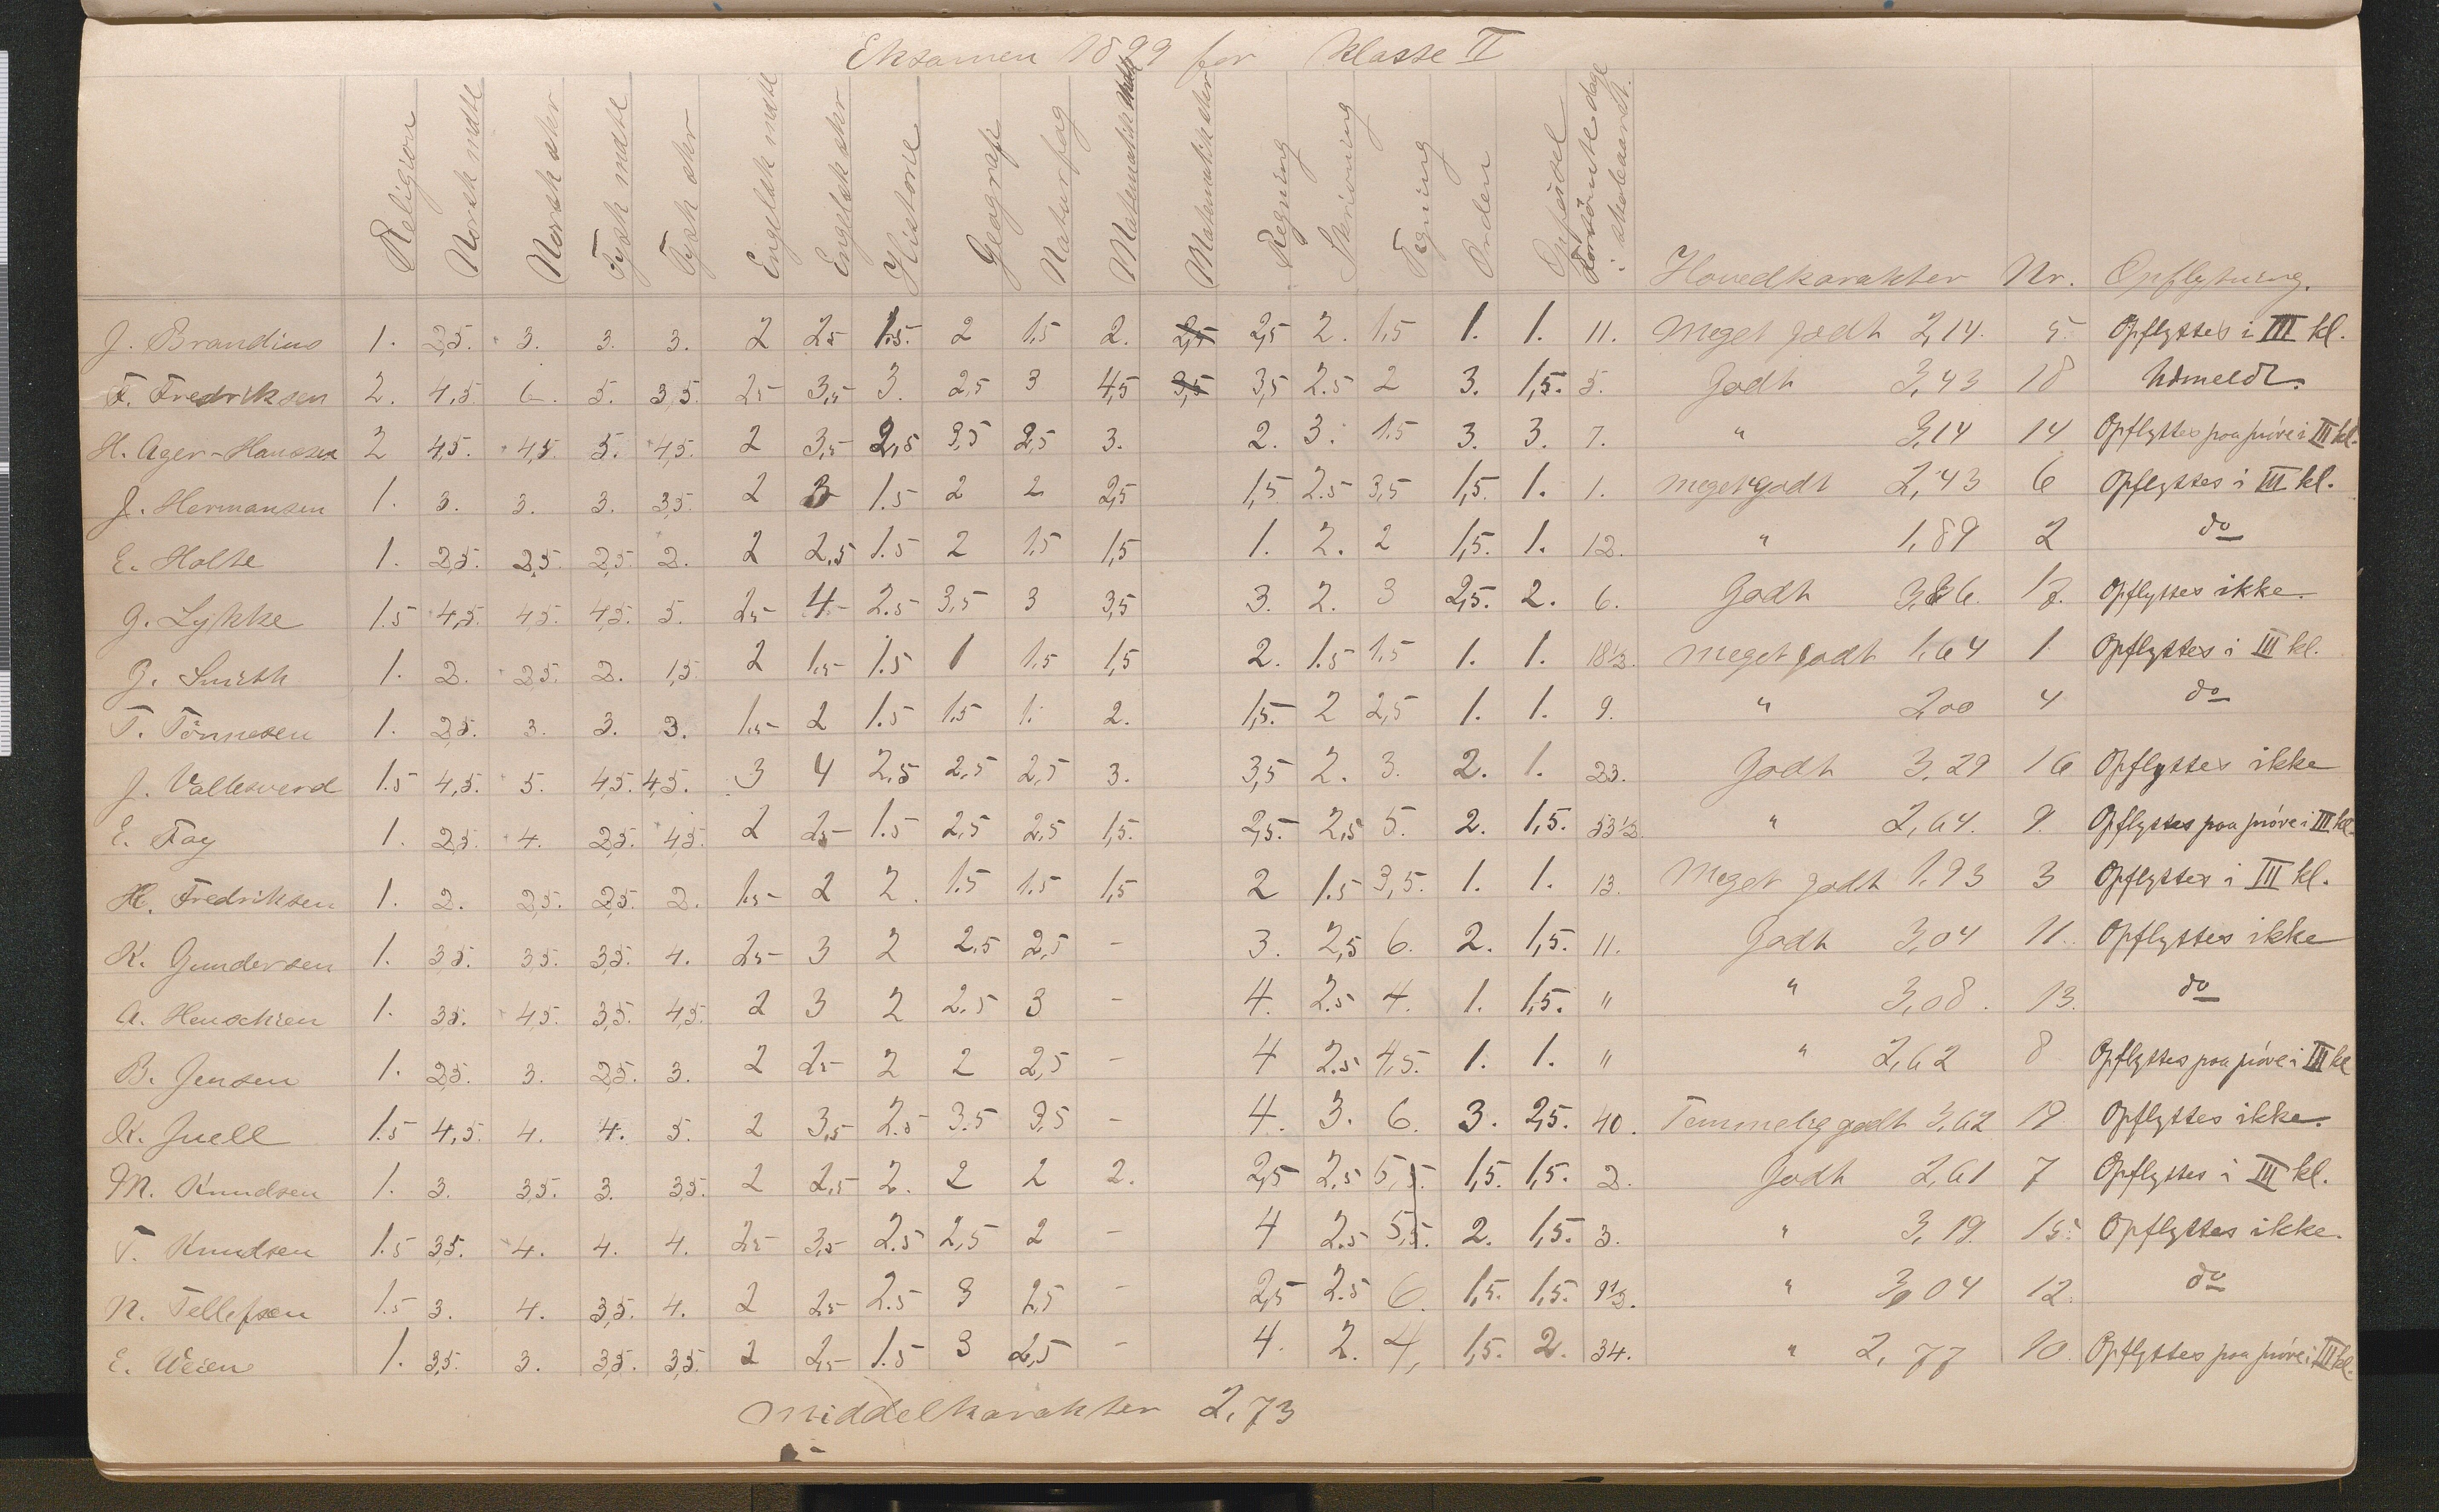 Eksamen 1899 for Klasse II
Religion Norsk mdtl Norsk skr Tysk mdtl Tysk skr Engelsk mdtl Engelsk skr Historie Geograf Naturfag Matematik mdtl Matematik skr Regning Skrivning Tegning Orden Opførsel Forsømte dage i skoleaaret. Hovedkarakter Nr. Opflytning.
J. Brandius 1. 2,5. 3. 3. 3. 2 2,5 1.5. 2 1,5 2. 2,5 2,5 2. 1,5 1. 1. 11. Meget godt 2,14. 5. Opflyttes i III kl.
F. Fredriksen 2. 4,5 6. 5. 3,5. 2,5 3,5 3. 2,5 3 4,5 3,5 3,5 2.5 2 3. 1,5. 5. Godt 3,43 18 Udmeldt.
H. Ager-Hanssen 2 4,5. 4,5. 5. 4,5. 2 3,5 2,5 3,5 2,5 3. 2. 3. 1.5 3. 3. 7. " 3,14 14 Opflyttes paa prøve i III kl.
J. Hermansen 1. 3. 3. 3. 3,5. 2 3 1.5 2 2 2,5 1,5 2.5 3,5 1,5. 1. 1. Meget godt 2,43 6 Opflyttes i III kl.
E. Holte 1. 2,5. 2,5. 2,5. 2. 2 2,5 1.5 2 1,5 1,5 1. 2. 2 1,5. 1. 12. " 1,89 2 do
G. Lykke 1.5 4,5. 4,5. 4,5. 5. 2,5 4 2.5 3,5 3 3,5 3. 2. 3 2,5. 2. 6. Godt 3,36. 17. Opflyttes ikke.
J. Smith 1. 2. 2,5. 2. 1,5. 2 1,5 1.5 1 1.5 1,5 2. 1.5 1,5 1. 1. 18½. Meget godt 1,64 1 Opflyttes i III kl.
T. Tönnesen 1. 2,5. 3. 3. 3. 1,5 2 1.5 1.5 1. 2. 1,5. 2 2,5 1. 1. 9. " 2,00 4 do
J. Vallesverd 1.5 4,5. 5. 4,5. 4,5. 3 4 2,5 2,5 2,5 3. 3,5 2. 3. 2. 1. 23. Godt 3,29 16 Opflyttes ikke
E. Fay 1. 2,5. 4. 2,5. 4,5. 2 2,5 1.5 2,5 2,5 1,5. 2,5. 2,5 5. 2. 1,5. 53½. " 2,64. 9. Opflyttes paa prøve i III kl.
H. Fredriksen 1. 2. 2,5. 2,5. 2. 1,5 2 2. 1.5 1.5 1,5 2 1.5 3,5. 1. 1. 13. Meget godt 1,93 3 Opflyttes i III kl.
K. Gundersen 1. 3,5. 3,5. 3,5. 4. 2,5 3 2 2,5 2,5 - 3. 2,5 6. 2. 1,5. 11. Godt 3,04 11. Opflyttes ikke
A. Henschien 1. 3,5. 4,5. 3,5. 4,5. 2 3 2 2.5 3 - 4. 2.5 4. 1. 1,5. " " 3,08. 13. do
B. Jensen 1. 2,5. 3. 2,5. 3. 2 2,5 2 2 2,5 - 4 2.5 4,5. 1. 1. " " 2,62 8 Opflyttes paa prøve i III kl
K. Juell 1.5 4,5. 4. 4. 5. 2 3,5 2.5 3.5 3,5 - 4. 3. 6. 3. 2,5. 40. Temmelig godt 3,62 19 Opflyttes ikke.
M. Knudsen 1. 3. 3,5. 3. 3,5. 2 2,5 2. 2 2 2. 2,5 2.5 5,5. 1,5. 1,5. 2. Godt 2,61 7 Opflyttes i III kl.
T. Knudsen 1.5 3,5. 4. 4. 4. 2,5 3,5 2.5 2,5 2 - 4 2.5 5,5. 2. 1,5. 3. " 3,19. 15. Opflyttes ikke.
N. Tellefsen 1.5 3. 4. 3,5. 4. 2 2,5 2.5 3 2,5 - 2,5 2.5 6. 1,5. 1,5. 9½. " 3,04 12. do
E. Weien 1. 3,5. 3. 3,5. 3,5. 2 2,5 1.5 3 2,5 - 4. 2. 4, 1,5. 2. 34. " 2,77 10. Opflyttes paa prøve i III kl.
Middelkarakter 2,73